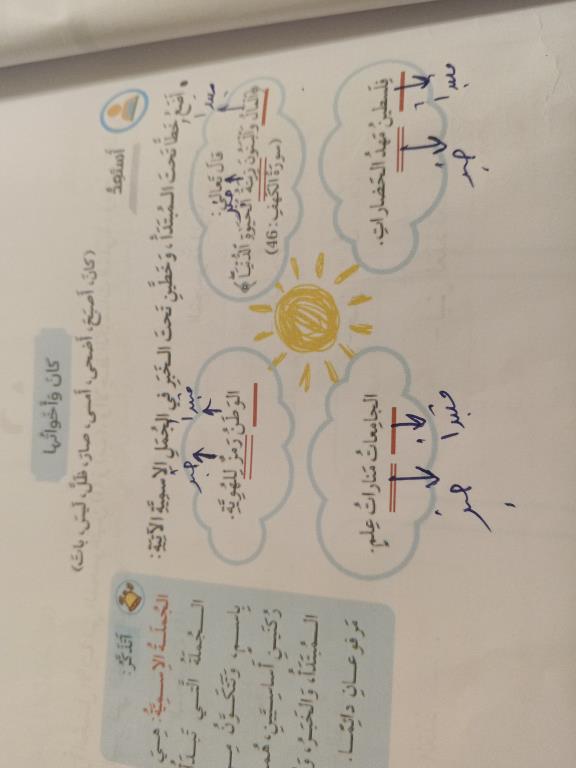 كانَ وَأَخَواتُها
(كانَ، أَصبَحَ، أَضْحى، أَمسى، صارَ، ظَلَّ، لَيْسَ، باتَ)
أَستَعِدُّ
• أَضَعُ خَطًّا تَحتَ المُبْتَدَأِ، وَخَطَّيْنِ تَحتَ الخَبَرِ في الجُمَلِ الِاسمِيَّةِ الآتِيَةِ:
قالَ تَعالى:
﴿الْمَالُ وَالْبَنُونَ زِينَةُ الْحَيَوٰةِ الدُّنْيَا﴾
(سورَةُ الكَهفِ: 46)
مبتدأ
خبر
الوَطَنُ رَمْزٌ لِلهُوِيَّةِ.
مبتدأ
خبر
فِلَسطينُ مَهدُ الحَضاراتِ.
مبتدأ
خبر
الجامِعاتُ مَناراتُ عِلمٍ.
مبتدأ
خبر
أَتَذَكَّرُ:
الجُملَةُ الِاسمِيَّةُ: هِيَ
الجُملَةُ الَّتي تَبدَأُ
بِاسمٍ، وَتَتَكَوَّنُ مِن
رُكنَيْنِ أَساسِيَّيْنِ، هُما
المُبْتَدَأُ، وَالخَبَرُ،
مَرفوعانِ دائِمًا.